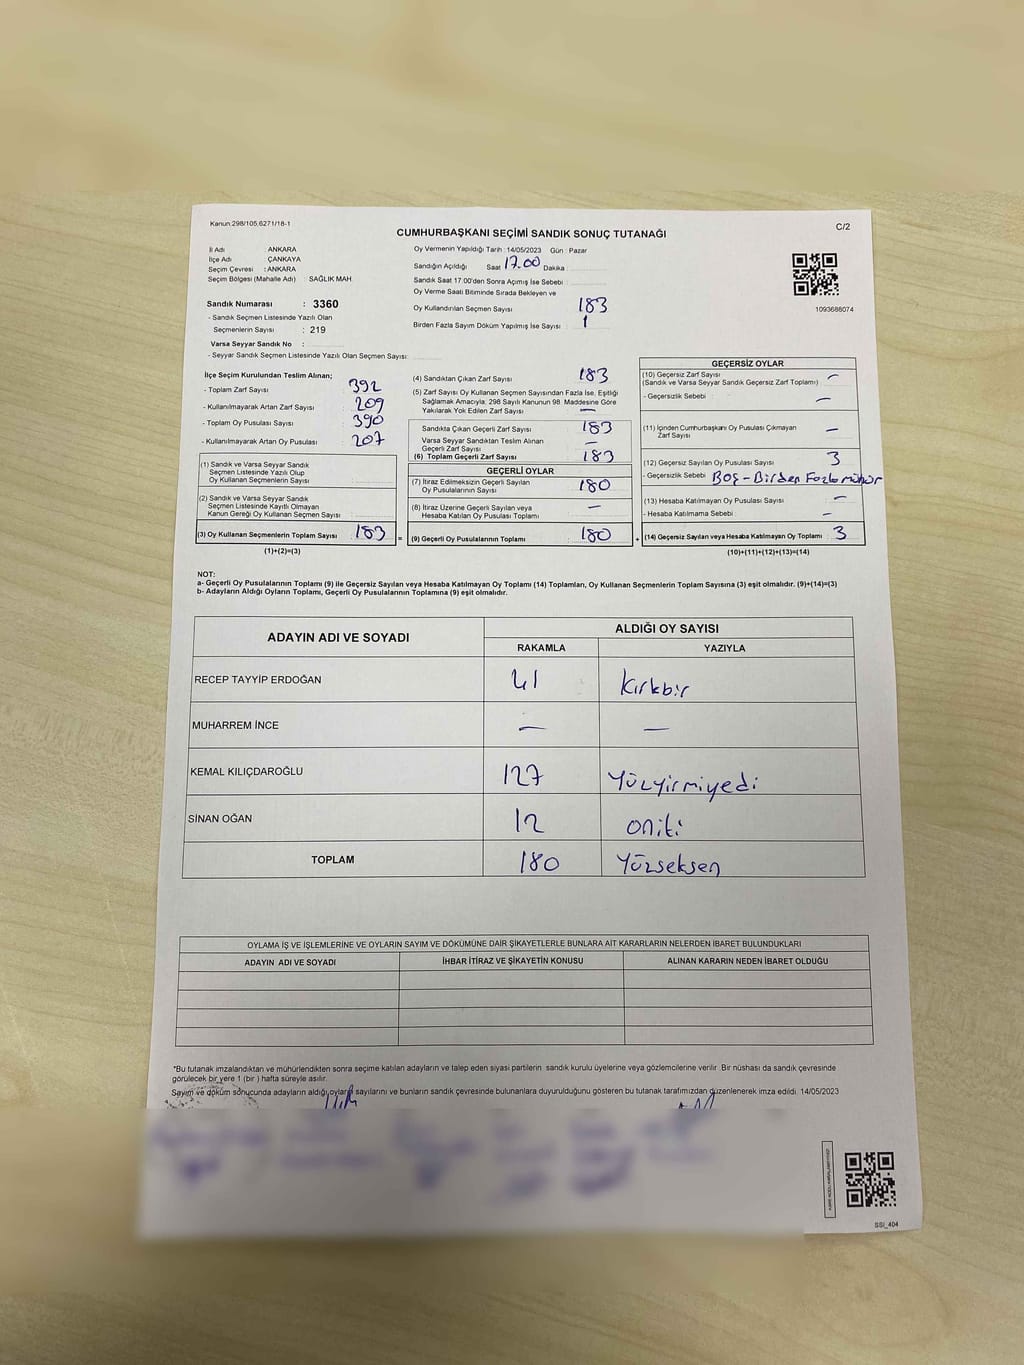 Kanun:298/105,6271/18-1
C/2
CUMHURBAŞKANI SEÇİMİ SANDIK SONUÇ TUTANAĞI
İl Adı ANKARA
İlçe Adı ÇANKAYA
Seçim Çevresi : ANKARA
Seçim Bölgesi (Mahalle Adı) : SAĞLIK MAH.
Sandık Numarası : 3360
- Sandık Seçmen Listesinde Yazılı Olan
Seçmenlerin Sayısı : 219
Varsa Seyyar Sandık No :
- Seyyar Sandık Seçmen Listesinde Yazılı Olan Seçmen Sayısı:
Oy Vermenin Yapıldığı Tarih : 14/05/2023 Gün : Pazar
Sandığın Açıldığı Saat 17.00 Dakika :
Sandık Saat 17:00'den Sonra Açımış İse Sebebi :
Oy Verme Saati Bitiminde Sırada Bekleyen ve
Oy Kullandırılan Seçmen Sayısı : 183
Birden Fazla Sayım Döküm Yapılmış İse Sayısı : 1
1093688074
İlçe Seçim Kurulundan Teslim Alınan;
- Toplam Zarf Sayısı : 392
- Kullanılmayarak Artan Zarf Sayısı : 209
- Toplam Oy Pusulası Sayısı : 390
- Kullanılmayarak Artan Oy Pusulası : 207
(1) Sandık ve Varsa Seyyar Sandık
Seçmen Listesinde Yazılı Olup
Oy Kullanan Seçmenlerin Sayısı :
(2) Sandık ve Varsa Seyyar Sandık
Seçmen Listesinde Kayıtlı Olmayan
Kanun Gereği Oy Kullanan Seçmen Sayısı :
(3) Oy Kullanan Seçmenlerin Toplam Sayısı : 183
(1)+(2)=(3)
=
(4) Sandıktan Çıkan Zarf Sayısı : 183
(5) Zarf Sayısı Oy Kullanan Seçmen Sayısından Fazla İse, Eşitliği
Sağlamak Amacıyla, 298 Sayılı Kanunun 98. Maddesine Göre
Yakılarak Yok Edilen Zarf Sayısı : —
Sandıkta Çıkan Geçerli Zarf Sayısı : 183
Varsa Seyyar Sandıktan Teslim Alınan
Geçerli Zarf Sayısı : —
(6) Toplam Geçerli Zarf Sayısı : 183
GEÇERLİ OYLAR
(7) İtiraz Edilmeksizin Geçerli Sayılan
Oy Pusulalarının Sayısı : 180
(8) İtiraz Üzerine Geçerli Sayılan veya
Hesaba Katılan Oy Pusulası Toplamı : —
(9) Geçerli Oy Pusulalarının Toplamı : 180
+
GEÇERSİZ OYLAR
(10) Geçersiz Zarf Sayısı : —
(Sandık ve Varsa Seyyar Sandık Geçersiz Zarf Toplamı)
- Geçersizlik Sebebi : —
(11) İçinden Cumhurbaşkanı Oy Pusulası Çıkmayan
Zarf Sayısı : —
(12) Geçersiz Sayılan Oy Pusulası Sayısı : 3
- Geçersizlik Sebebi : BOŞ-Birden Fazla mühür
(13) Hesaba Katılmayan Oy Pusulası Sayısı : —
- Hesaba Katılmama Sebebi : —
(14) Geçersiz Sayılan veya Hesaba Katılmayan Oy Toplamı : 3
(10)+(11)+(12)+(13)=(14)
NOT:
a- Geçerli Oy Pusulalarının Toplamı (9) ile Geçersiz Sayılan veya Hesaba Katılmayan Oy Toplamı (14) Toplamları, Oy Kullanan Seçmenlerin Toplam Sayısına (3) eşit olmalıdır. (9)+(14)=(3)
b- Adayların Aldığı Oyların Toplamı, Geçerli Oy Pusulalarının Toplamına (9) eşit olmalıdır.
ADAYIN ADI VE SOYADI ALDIĞI OY SAYISI
RAKAMLA YAZIYLA
RECEP TAYYİP ERDOĞAN 41 Kırkbir
MUHARREM İNCE — —
KEMAL KILIÇDAROĞLU 127 Yüzyirmiyedi
SİNAN OĞAN 12 oniki
TOPLAM 180 Yüzseksen
OYLAMA İŞ VE İŞLEMLERİNE VE OYLARIN SAYIM VE DÖKÜMÜNE DAİR ŞİKAYETLERLE BUNLARA AİT KARARLARIN NELERDEN İBARET BULUNDUKLARI
ADAYIN ADI VE SOYADI İHBAR İTİRAZ VE ŞİKAYETİN KONUSU ALINAN KARARIN NEDEN İBARET OLDUĞU
*Bu tutanak imzalandıktan ve mühürlendikten sonra seçime katılan adayların ve talep eden siyasi partilerin sandık kurulu üyelerine veya gözlemcilerine verilir. Bir nüshası da sandık çevresinde
görülecek bir yere 1 (bir) hafta süreyle asılır.
Sayım ve döküm sonucunda adayların aldığı oyların sayılarını ve bunların sandık çevresinde bulunanlara duyurulduğunu gösteren bu tutanak tarafımızdan düzenlenerek imza edildi. 14/05/2023
SSİ_404